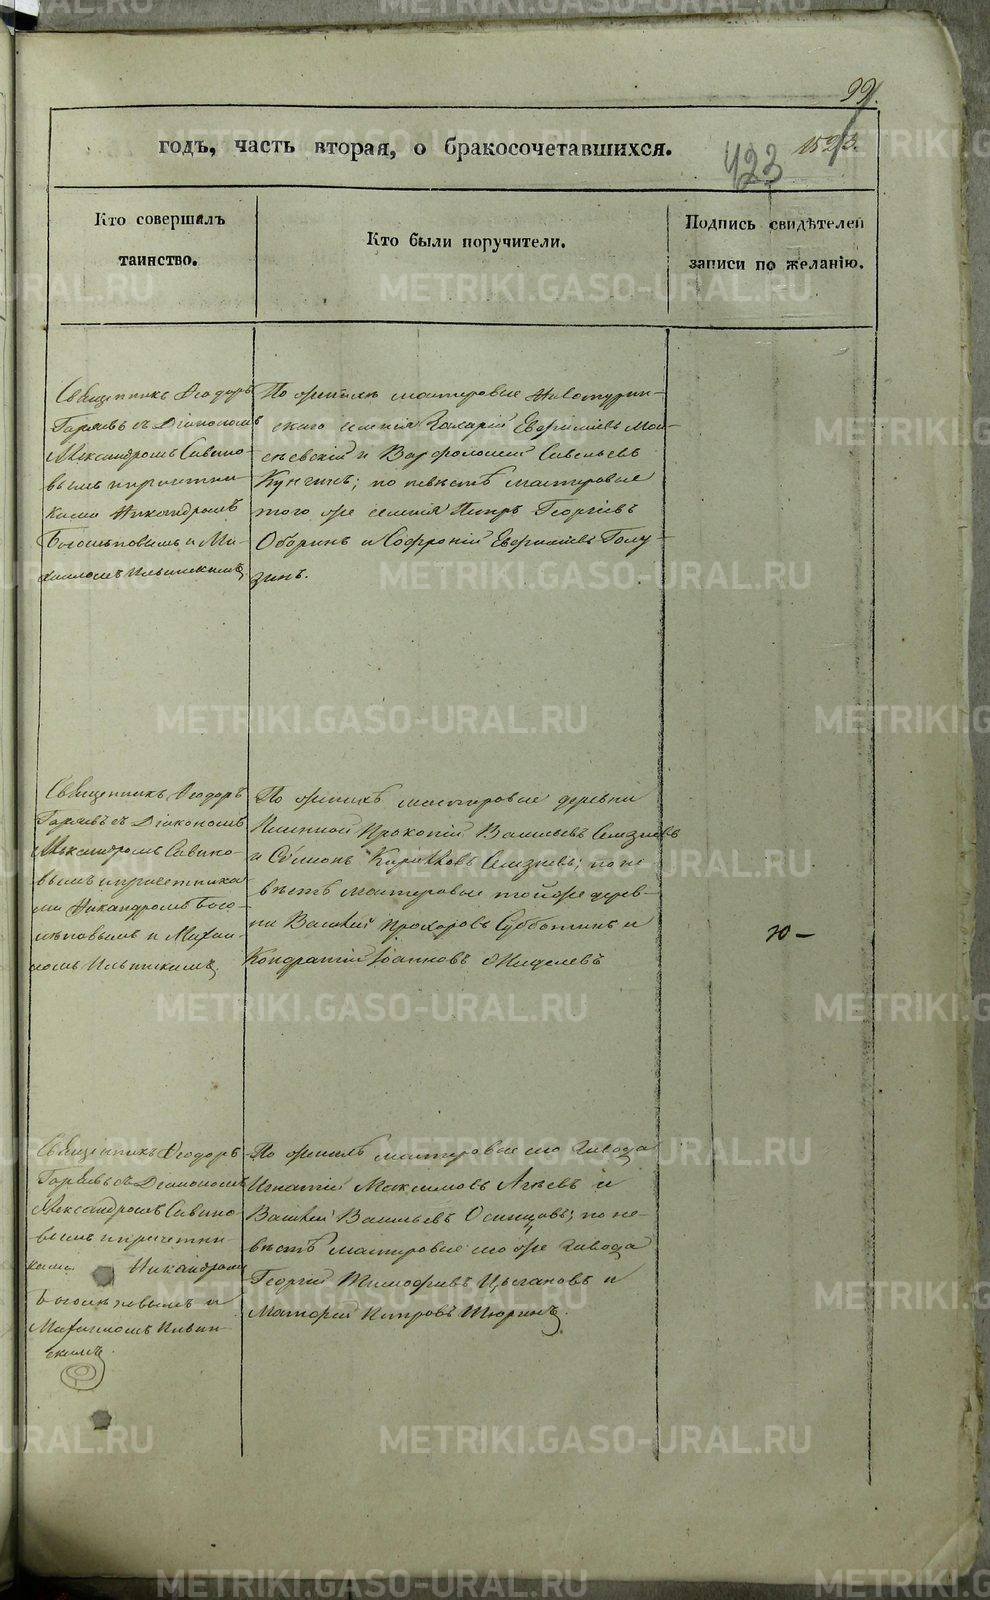 99.
годъ, часть вторая, о бракосочетавшихся.
423
1523.
Кто совершалъ
таинство.
Кто были поручители.
Подпись свидѣтелей
записи по желанію.
Священникъ Ѳеодоръ
съ Діакономъ
Александромъ Савино-
вымъ и причетни-
ками Никандромъ
Боголѣповымъ и Ми-
хаиломъ Ильинскимъ
По женихѣ мастеровые Нивотурин-
скаго селенія Евфиміевъ Мои-
сѣевскій и Варфоломей Савельевъ
Кунгинъ; по невѣстѣ мастеровые
того же селенія Петръ Георгіевъ
Оборинъ и Софроній Евфиміевъ Голу-
зинъ.
Священникъ Ѳеодоръ
съ Діакономъ
Александромъ Савино-
вымъ и причетника-
ми Никандромъ Бого-
лѣповымъ и Михаи-
ломъ Ильинскимъ.
По женихѣ мастеровые деревни
Прокопій Васильевъ Селезневъ
и Сѵмеонъ Селезневъ; по не-
вѣстѣ мастеровые той же дерев-
ни Василій Прохоровъ Субботинъ и
Кондратій Іоанновъ
ю —
Священникъ Ѳеодоръ
съ Діакономъ
Александромъ Савино-
вымъ и причетни-
ками Никандромъ
Боголѣповымъ и
Михаиломъ Ильин-
скимъ.
По женихѣ мастеровые сего завода
Игнатій Максимовъ Агѣевъ и
Василій Васильевъ Осинцовъ; по не-
вѣстѣ мастеровые сего же завода
Георгій Тимофѣевъ Цыгановъ и
Петровъ Тюринъ.
METRIKI.GASO-URAL.RU